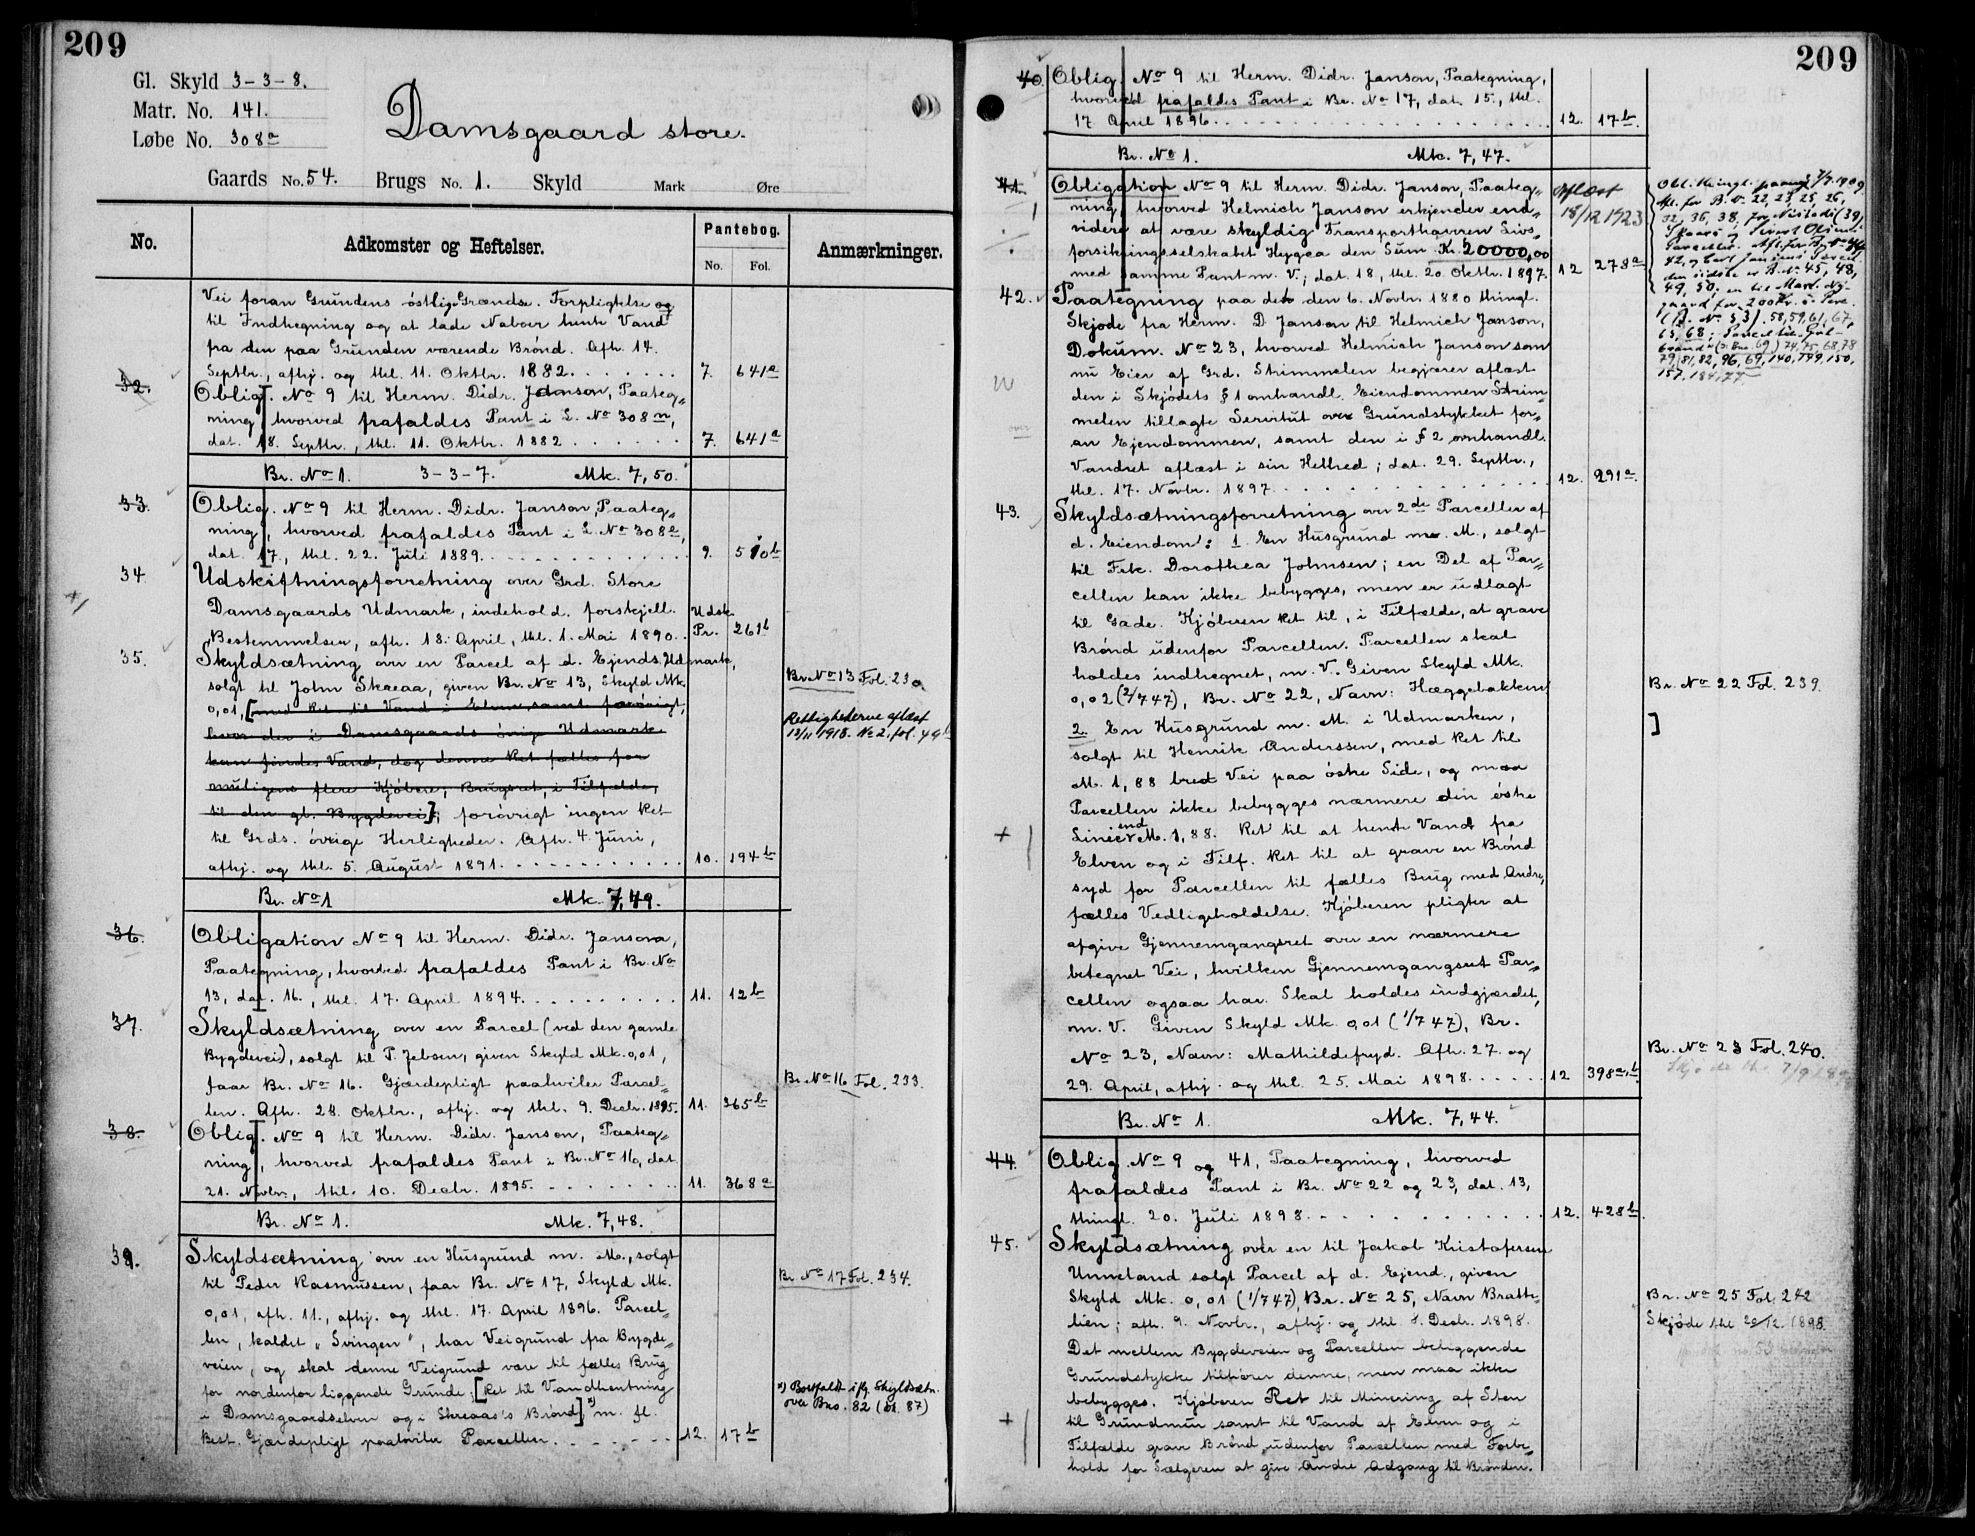 209
Gl. Skyld 3-3-8.
Matr. No. 141.
Løbe No. 308a
Damsgaard store.
Gaards No. 54. Brugs No. 1. Skyld Mark Øre
No.
Adkomster og Heftelser.
Pantebog.
No. Fol.
Anmærkninger.
Vei foran Grundens østlige Grændse. Forpligtelse og
til Indhegning og at lade Naboer hente Vand
fra den paa Grunden værende Brønd. Afh. 14.
Septbr., afhj. og thl. 11. Oktbr. 1882. 7. 641a
32. Oblig. No 9 til Herm. Didr. Janson, Paateg-
ning, hvorved frafaldes Pant i L. No 308m,
dat. 18. Septbr., thl. 11. Oktbr. 1882 7. 641a
Br. No 1. 3-3-7. Mk. 7,50.
33. Oblig. No 9 til Herm. Didr. Janson, Paateg-
ning, hvorved frafaldes Pant i L No 308e,
dat. 17, thl. 22. Juli 1889. 9. 510b
34. Udskiftningsforretning over Grd. Store
Damsgaards Udmark, indehold. forskjell. Udsk.
Bestemmelser, afh. 18. April, thl. 1. Mai 1890. Pr. 261b
35. Skyldsætning over en Parcel af d. Ejends. Udmark,
solgt til John Skaeaa, given Br. No 13, Skyld Mk. Br No 13 Fol. 230.
0,01, [med Ret til Vand i Elven, samt forøvrigt,
hvor der i Damsgaards øvrige Udmark Rettighederne aflæst
kan findes Vand, dog denne Ret fælles for 13/11 1918. No 2, fol. 49b
muligens flere Kjøbere; Brugsret, i Tilfælde,
til den gl. Bygdevei]; forøvrigt ingen Ret
til Grds. øvrige Herligheder. Afh. 4. Juni,
afhj. og thl. 5. August 1891. 10. 194b
Br. No 1 Mk. 7,49.
36. Obligation No 9 til Herm. Didr. Janson,
Paategning, hvorved frafaldes Pant i Br. No
13, dat. 16., thl. 17. April 1894. 11. 12b
37. Skyldsætning over en Parcel (ved den gamle
Bygdevei), solgt til P. Jebsen, given Skyld Mk. 0,01,
faar Br. No 16. Gjærdepligt paahviler Parcel- Br No 16 Fol. 233.
len. Afh. 28. Oktbr., afhj. og thl. 9. Decbr. 1895. 11. 365b
38. Oblig. No 9 til Herm. Didr. Janson, Paateg-
ning, hvorved frafaldes Pant i Br. No 16, dat.
21. Novbr., thl. 10. Decbr. 1895. 11. 368a
Br. No 1. Mk. 7,48.
39. Skyldsætning over en Husgrund m. M., solgt
til Peder Rasmussen, faar Br. No 17, Skyld Mk. Br No 17 Fol. 234.
0,01, afh. 11., afhj. og thl. 17. April 1896. Parcel-
len, kaldet "Svingen", har Veigrund fra Bygde-
veien, og skal denne Veigrund være til fælles Brug
for nordenfor liggende Grunde; [Ret til Vandhentning x) Bortfaldt iflg. Skyldsætn.
i Damsgaardselven og i Skreaas's Brønd] x) m. fl. over Bno. 82 (bl. 87)
Best. Gjærdepligt paahviler Parcellen. 12. 17b
209
40. Oblig. No 9 til Herm. Didr. Janson, Paategning,
hvorved frafaldes Pant i Br. No 17, dat. 15., thl.
17 April 1896. 12. 17b.
Br. No 1. Mk. 7,47.
41. Obligation No 9 til Herm. Didr. Janson, Paateg- Aflæst
ning, hvorved Helmich Janson erkjender end- 18/12 1923
videre at være skyldig Transporthaveren Livs-
forsikringsselskabet Hygea den Sum Kr. 20000,00
med samme Pant m. V.; dat. 18, thl. 20. Oktbr. 1897. 12 278a
42. Paategning paa det den 6. Novbr. 1880 thingl.
Skjøde fra Herm. D Janson til Helmich Janson,
Dokum. No 23, hvorved Helmich Janson som
nu Eier af Grd. Strimmelen begjærer aflæst
den i Skjødets § 1 omhandl. Eiendommen Strim-
melen tillagte Servitut over Grundstykket for-
an Ejendommen, samt den i § 2 omhandl.
Vandret aflæst i sin Helhed; dat. 29. Septbr.,
thl. 17. Novbr. 1897. 12. 291a.
43. Skyldsætningsforretning over 2de Parceller af
d. Eiendom: 1. En Husgrund m. M., solgt
til Frk. Dorothea Johnsen; en Del af Par-
cellen kan ikke bebygges, men er udlagt
til Gade. Kjøberen Ret til, i Tilfælde, at grave
Brønd udenfor Parcellen. Parcellen skal
holdes indhegnet, m. V. Given Skyld Mk.
0,02 (2/747), Br. No 22, Navn: Hæggebakken Br. No 22 Fol. 239.
2. En Husgrund m. M. i Udmarken, ]
solgt til Henrik Anderssen, med Ret til
M. 1,88 bred Vei paa østre Side, og maa
Parcellen ikke bebygges nærmere den østre
Linie end M. 1,88. Ret til at hente Vand fra
Elven og i Tilf. Ret til at grave en Brønd
syd for Parcellen til fælles Brug med Andre,
fælles Vedligeholdelse. Kjøberen pligter at
afgive Gjennemgangsret over en nærmere
betegnet Vei, hvilken Gjennemgangsret Par-
cellen ogsaa har. Skal holdes indgjærdet,
m. V. Given Skyld Mk. 0,01 (1/747), Br.
No 23, Navn: Mathildefryd. Afh. 27. og Br. No 23 Fol. 240.
29. April, afhj. og thl. 25. Mai 1898. 12 398a,b
Br. No 1. Mk. 7,44.
44. Oblig No 9 og 41, Paategning, hvorved
frafaldes Pant i Br. No 22 og 23, dat. 13,
thingl. 20. Juli 1898. 12. 428b.
45. Skyldsætning over en til Jakob Kristofersen
Unneland solgt Parcel af d. Ejend., given
Skyld Mk. 0,01 (1/747), Br. No 25, Navn Bratte- Br. No 25 Fol. 242
lien; afh. 9. Novbr., afhj. og thl. 8. Decbr. 1898. Skjøde thl 20/12 1898.
Det mellem Bygdeveien og Parcellen beliggende
Grundstykke tilhører denne, men maa ikke
bebygges. Kjøberen Ret til Minering af Sten
til Grundmur samt til Vand af Elven og i
Tilfælde grave Brønd udenfor Parcellen med Forbe-
hold for Sælgeren at give Andre Adgang til Brønden.